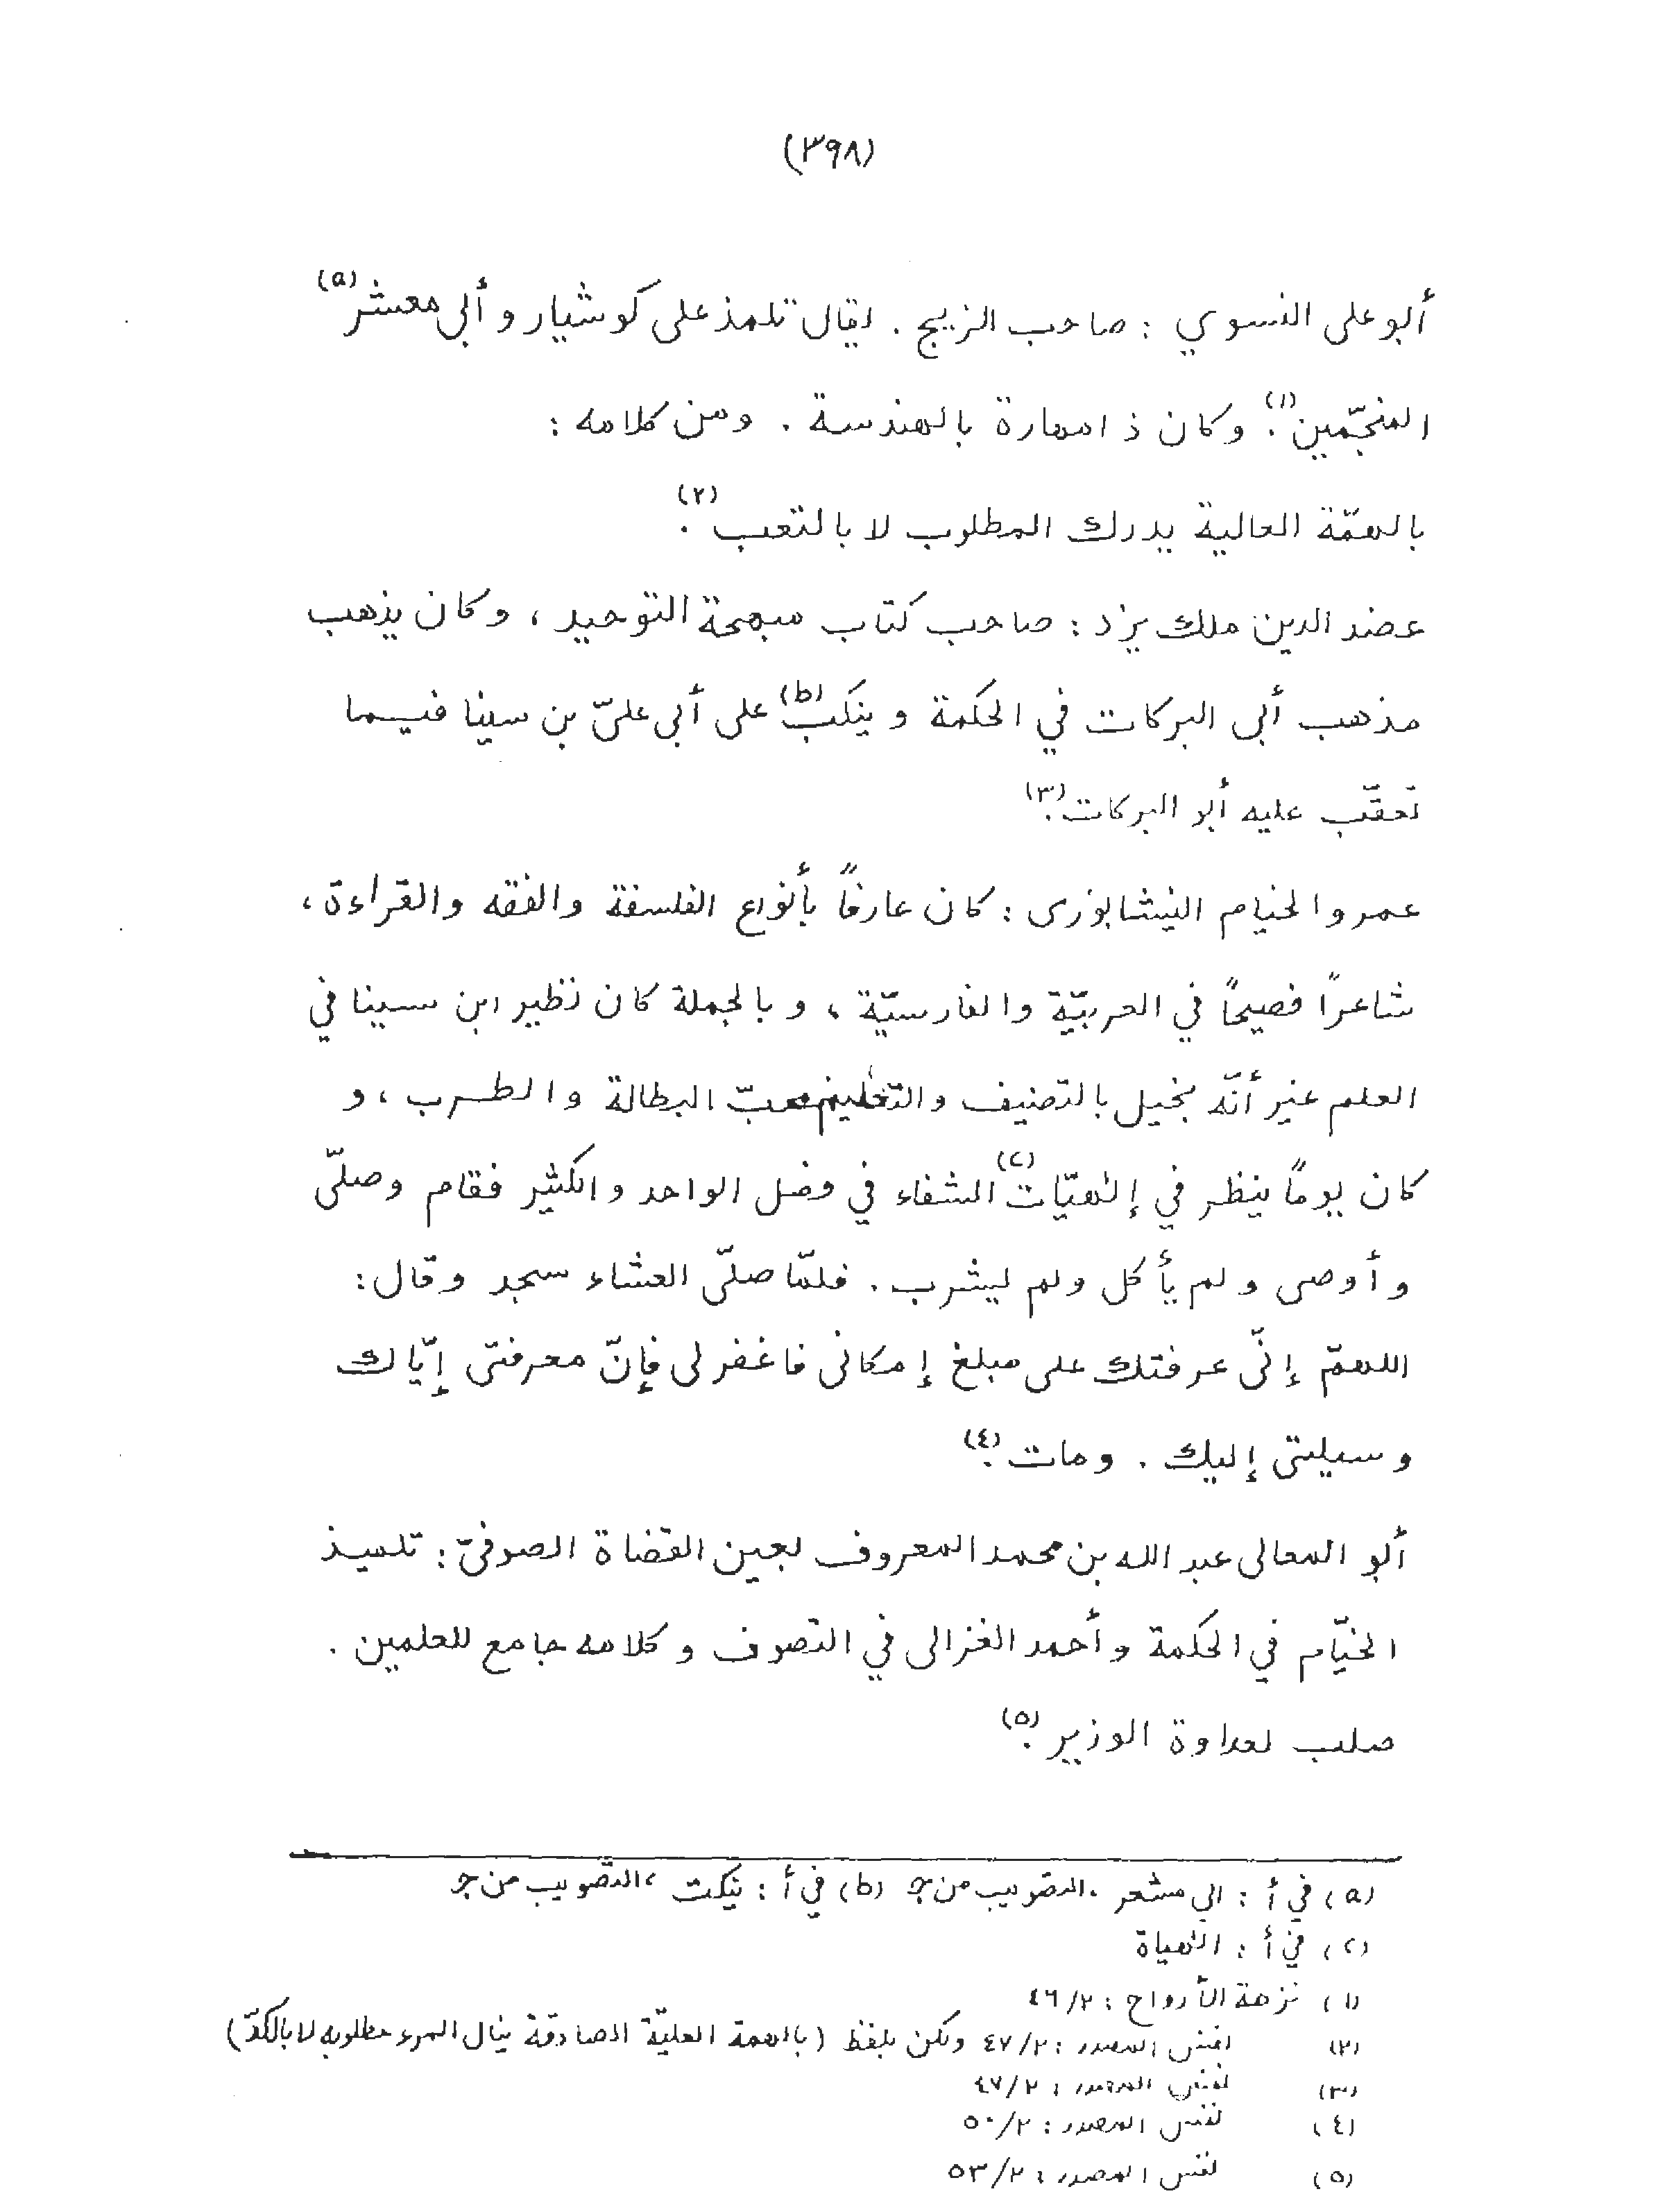 (٣٩٨)
أبو على النسوي : صاحب الزيج . يقال تلمذ على كوشيار و أبى معشر (a)
المنجّمين (١). وكان ذا مهارة بالهندسة . ومن كلامه :
بالهمّة العالية يدرك المطلوب لا بالتعب (٢).
عضد الدين ملك يزد : صاحب كتاب مهجة التوحيد ، وكان يذهب
مذهب أبى البركات في الحكمة و ينكب (b) على أبى علىّ بن سينا فيما
تعقّب عليه أبو البركات (٣).
عمر والخيام النيشابورى : كان عارفاً بأنواع الفلسفة والفقه والقراءة ،
شاعرًا فصيحًا في العربيّة والفارسيّة ، و بالجملة كان نظير ابن سينا في
العلم غير أنّه بخيل بالتصنيف والتعليم محبّ البطالة والطرب ، و
كان يومًا ينظر في إلٰهيّات (c) الشفاء في فصل الواحد والكثير فقام وصلّى
و أوصى و لم يأكل ولم يشرب . فلمّا صلّى العشاء سجد وقال :
اللهمّ إنّى عرفتك على مبلغ إمكانى فاغفر لى فإنّ معرفتى إيّاك
وسيلتى إليك . ومات (٤).
أبو المعالى عبد الله بن محمد المعروف بعين القضاة الصوفىّ : تلميذ
الخيّام في الحكمة و أحمد الغزالى في التصوف و كلامه جامع للعلمين .
صلب لعداوة الوزير (٥).
(a) في أ : الي مشعر ، التصويب من ج (b) في أ : ينكت ، التصويب من ج
(c) في أ : الٰهياة
(١) نزهة الأرواح : ٤٦/٢
(٢) نفس المصدر : ٤٧/٢ ولكن بلفظ (بالهمة العليّة الصادقة ينال المرء مطلوبه لا بالكدّ)
(٣) نفس المصدر : ٤٧/٢
(٤) نفس المصدر : ٥٠/٢
(٥) نفس المصدر : ٥٣/٢